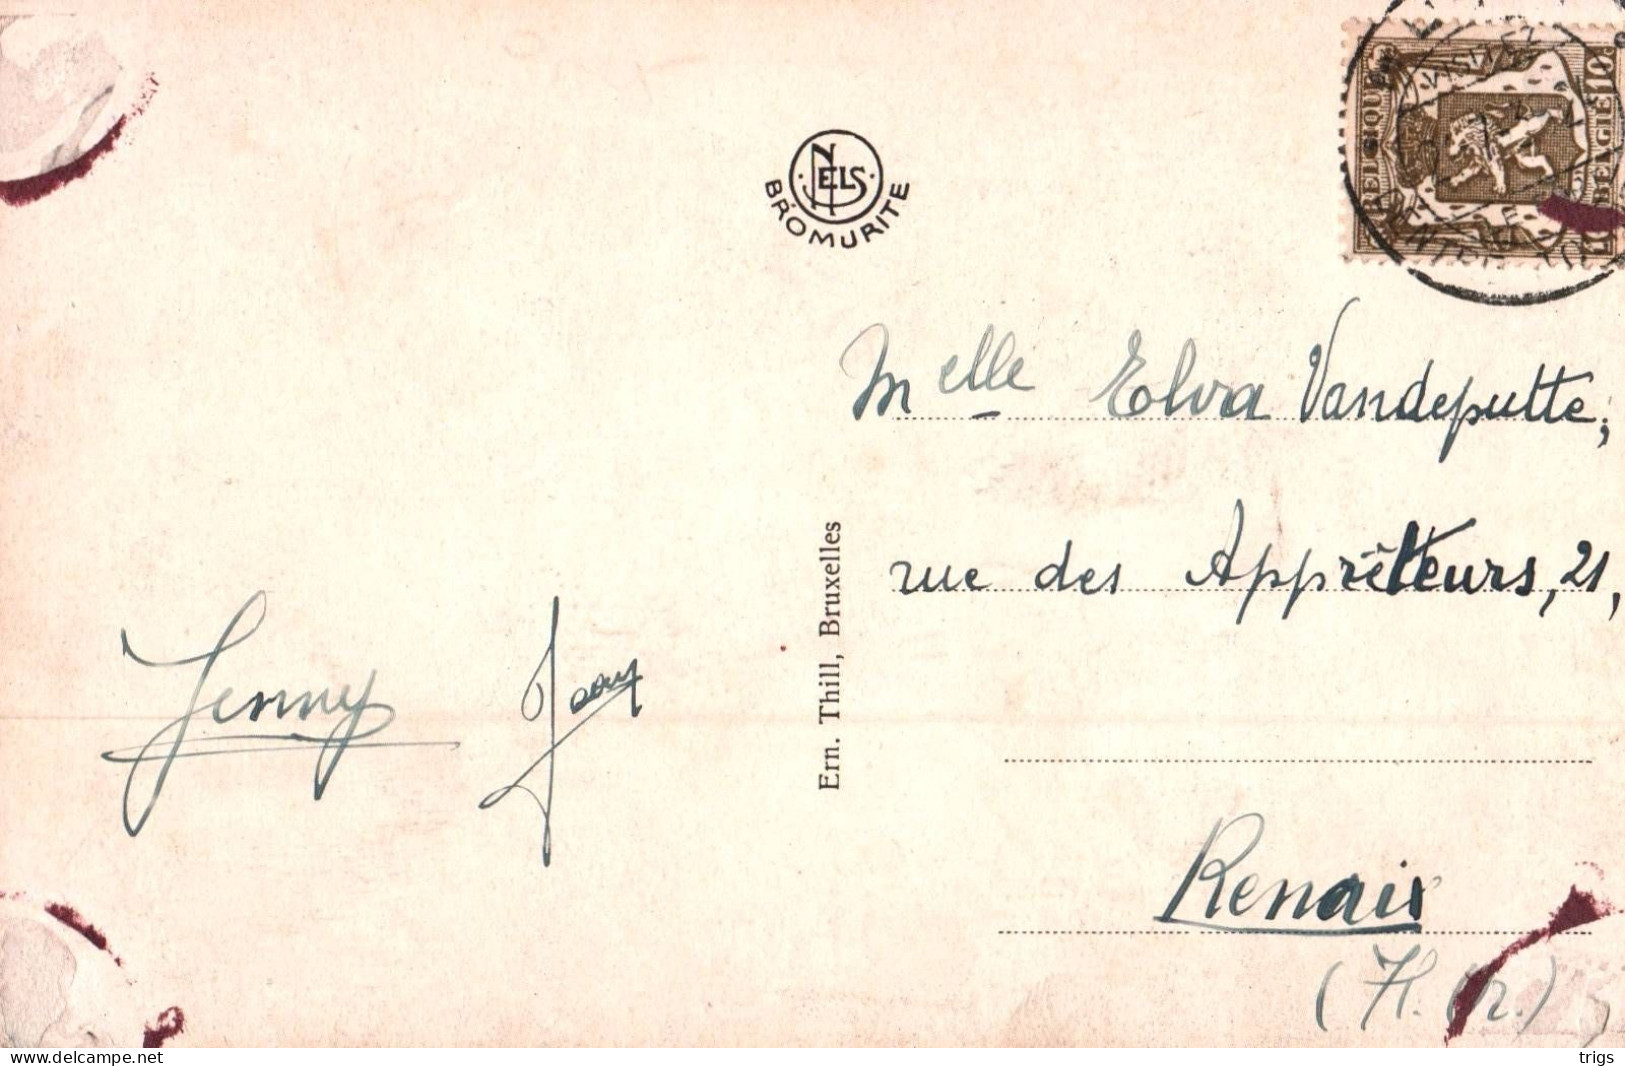 NELS
BROMURITE
BELGIQUE
BELGIË
10c
Melle Elvra Vandeputte,
rue des Apprêteurs, 21,
Renaix
Jenny
Ern. Thill, Bruxelles
delcampe.net
trigs